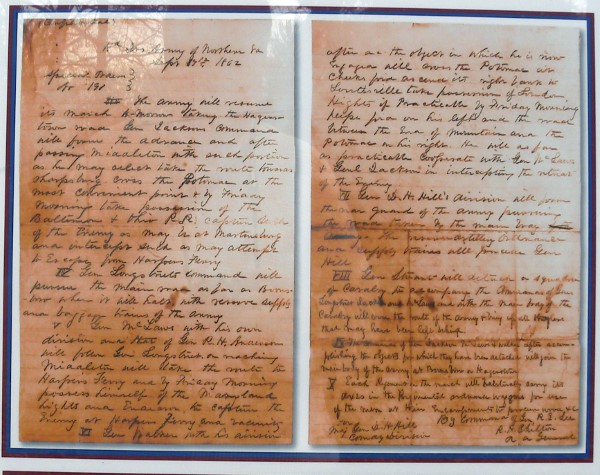 Hd Qrs Army of Northern Va
Sept 9th 1862
Special Orders
No 191
III The army will resume
its march to-morrow taking the Hagers
town road. Gen Jackson's command
will form the advance and after
passing Middleton with such portion
as he may select take the route towards
Sharpsburg cross the Potomac at the
most convenient point & by Friday
morning take possession of the
Baltimore & Ohio R.R. capture such
of the Enemy as may be at Martinsburg
and intercept such as may attempt
to Escape from Harpers Ferry
IV Gen Longstreet's command will
pursue the main road as far as Boons
boro where it will halt, with reserve supply
and baggage trains of the army
V Gen McLaws with his own
division and that of Gen R. H. Anderson
will follow Gen Longstreet, on reaching
Middleton will take the route to
Harpers Ferry and by Friday morning
possess himself of the Maryland
heights and Endeavor to capture the
Enemy at Harpers Ferry and vicinity
VI Gen Walker with his division
after the object in which he is now
Engaged will cross the Potomac at
Cheeks ford ascend its right bank to
Lovettsville take possession of Loudon
Heights if Practicable by Friday Morning
Keyes ford on his left and the road
between the End of mountain and the
Potomac on his right. He will as far
as practicable cooperate with Gen McLaws
& Genl Jackson in intercepting the retreat
of the Enemy
VII Gen D. H. Hill's division will form
the rear guard of the army pursuing
the road taken by the main body
The reserve artillery Ordnance
and supply trains will precede Gen
Hill
VIII Gen Stuart will detach a squadron
of Cavalry to accompany the Commands of Gen
Longstreet Jackson and McLaws and with the main body of the
Cavalry will cover the route of the Army & bring up all stragglers
that may have been left behind
IX The commands of Gen Jackson McLaws & Walker after accom
plishing the objects for which they have been detached will join the
main body of the army at Boonsboro or Hagerstown
X Each Regiment on the march will habitually carry its
axes in the Regimental ordnance wagons for use
of the men at their Encampments to procure wood &c
By Command of Gen R. E. Lee
R. H. Chilton
A. A. General
For
Maj Gen D. H. Hill
Comdg Division